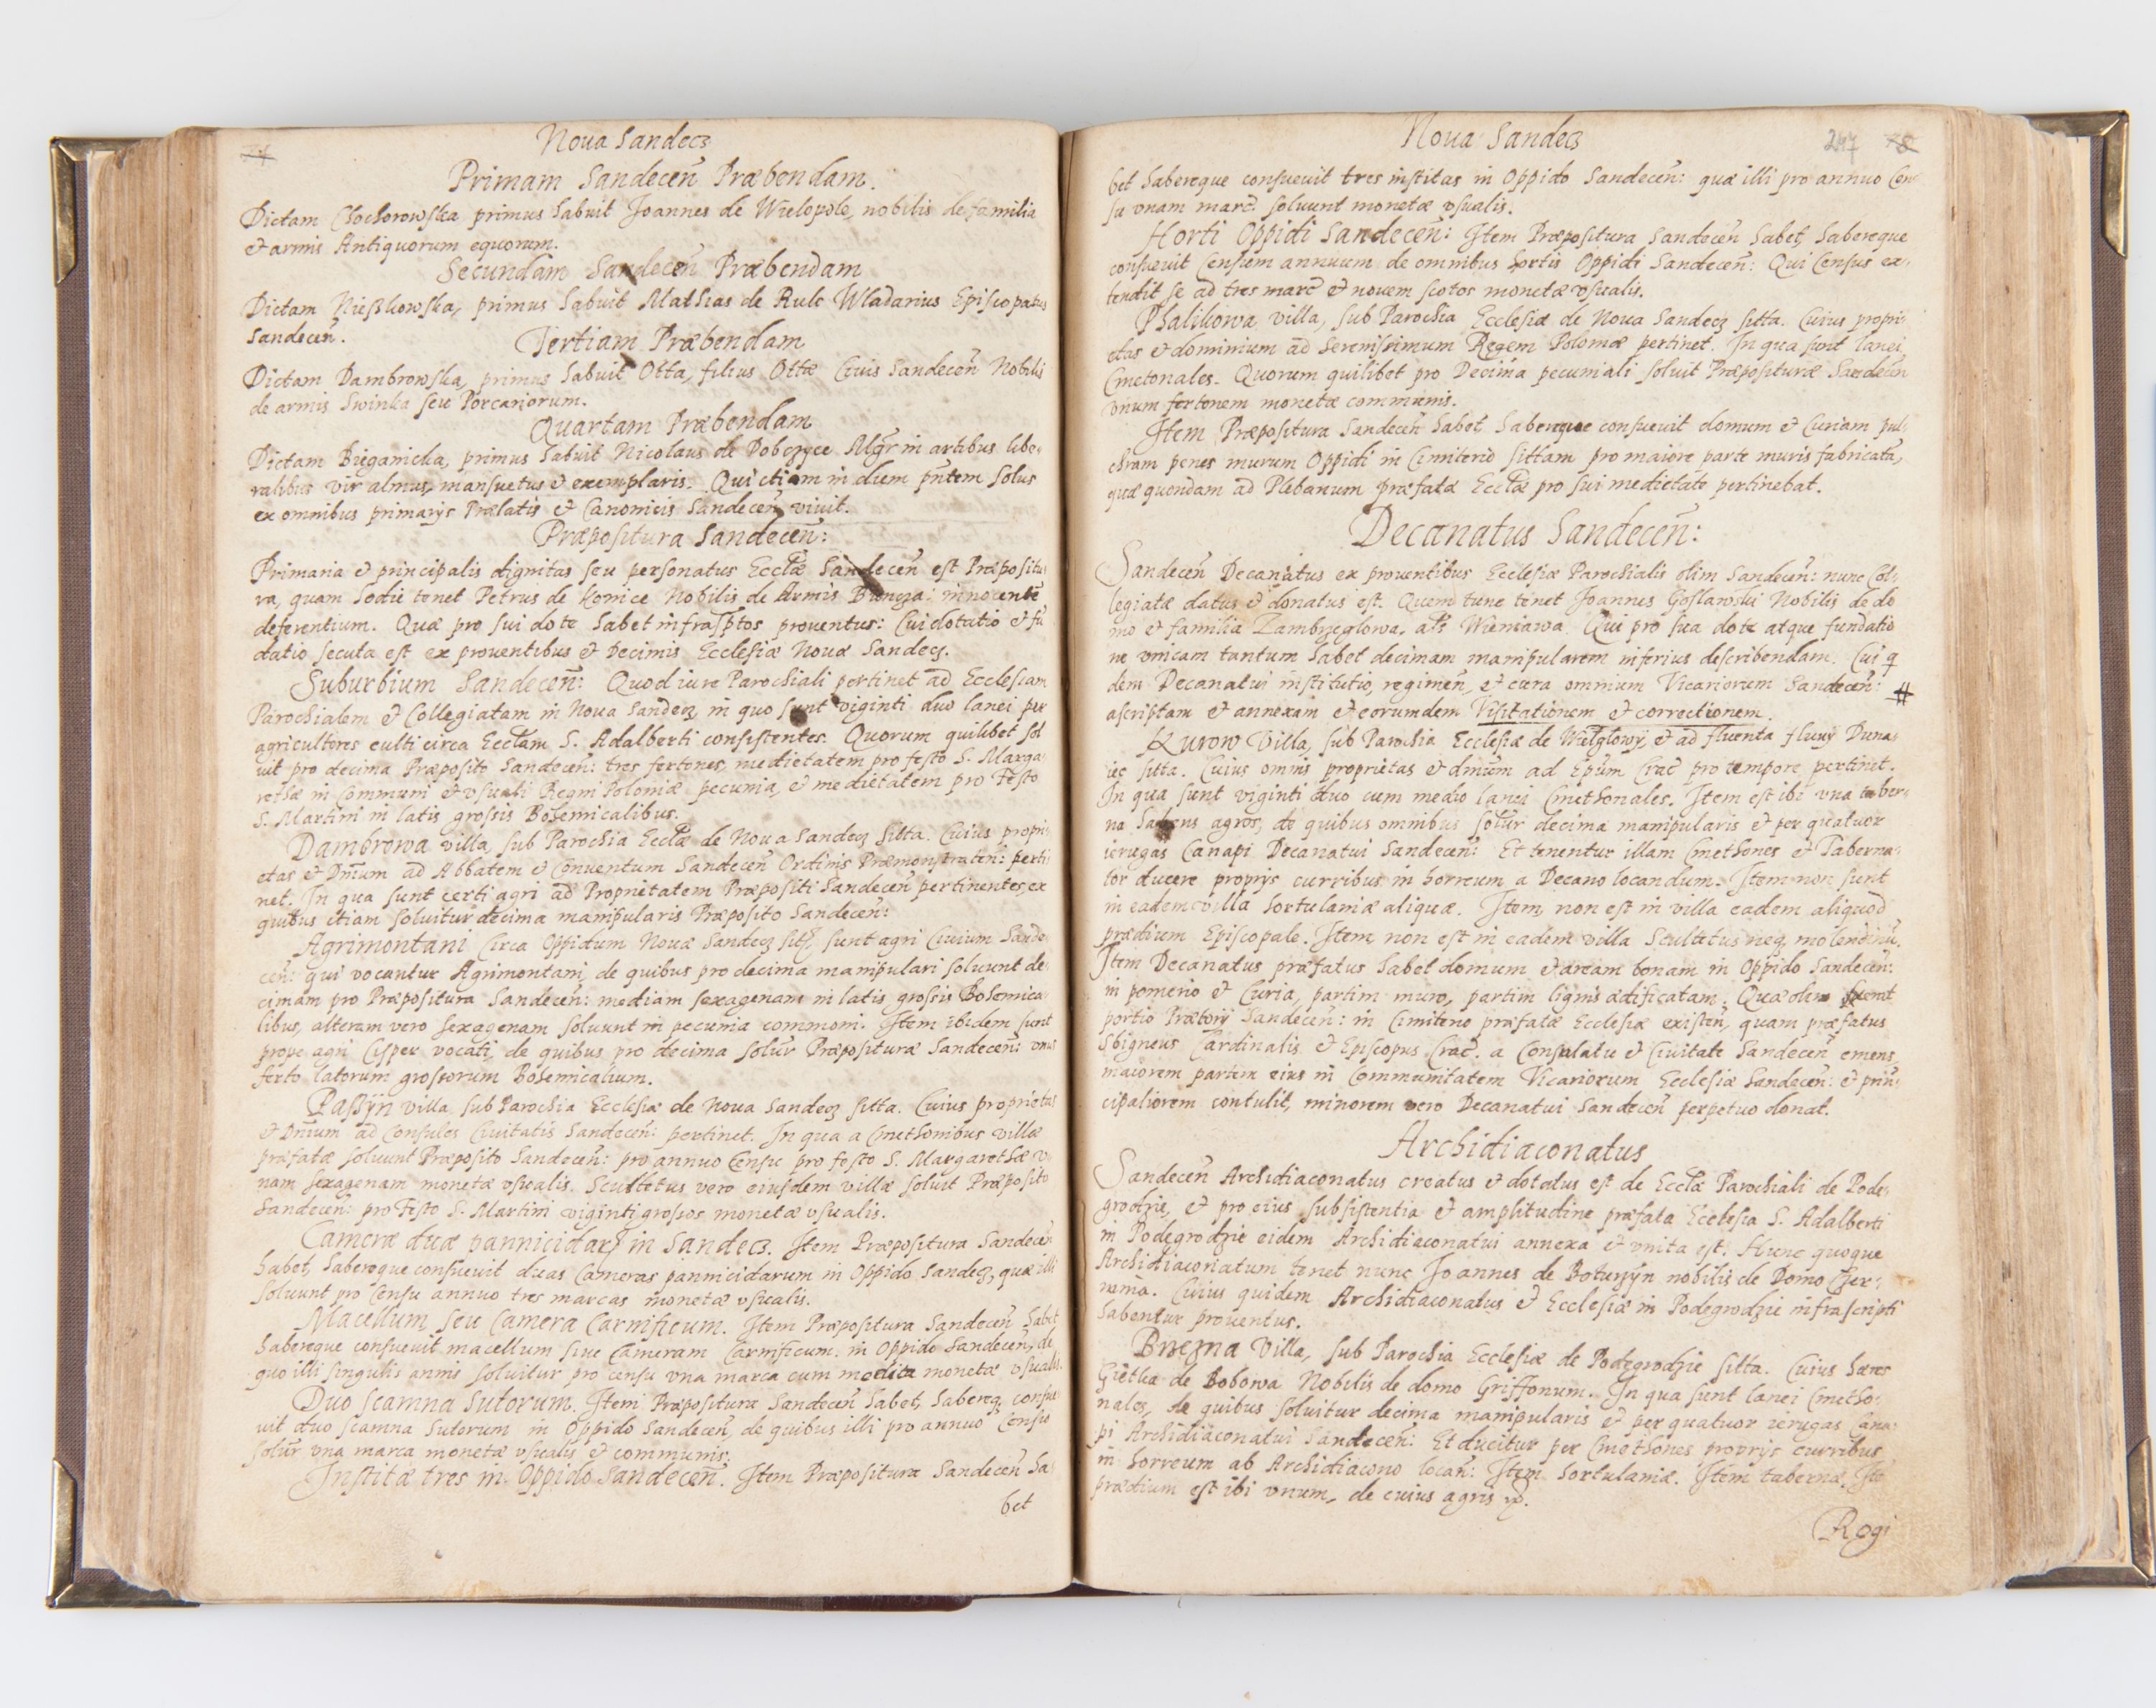 Noua Sandecz
Primam Sandeceñ Præbendam.
Dictam Chochorowska primus habuit Joannes de Wielopole, nobilis de familia
et armis Antiquorum equorum.
Secundam Sandeceñ Præbendam
Dictam primus habuit Mathias de Wladarius Episcopatus
Sandeceñ.
Tertiam Præbendam
Dictam Dambrowska, primus habuit Otta, filius Ottæ Ciuis Sandeceñ Nobilis
de armis Swinka seu Porcariorum.
Quartam Præbendam
Dictam Bieganicka, primus habuit Nicolaus de Dobczyce Mgr in artibus libe-
ralibus vir almus, mansuetus et exemplaris. Qui etiam in diem pñtem solus
ex omnibus primarijs Prælatis et Canonicis Sandeceñ viuit.
Præpositura Sandeceñ:
Primaria et principalis dignitas seu personatus Ecctæ Sandeceñ est Præpositu
ra, quam hodie tenet Petrus de Nobilis de Armis
deferentium. Quæ pro sui dote habet infrasptos prouentus: Cui dotatio et fu
datio secuta est ex prouentibus et Decimis Ecclesiæ Nouæ Sandecz.
Suburbium Sandeceñ: Quod iure Parochiali pertinet ad Ecclesiam
Parochialem et Collegiatam in Noua Sandecz in quo sunt viginti duo lanei per
agricultores culti circa Ecctam S. Adalberti consistentes. Quorum quilibet sol
uit pro decima Præposito Sandeceñ: tres fertones, medietatem pro festo S. Marga
rethæ in Communi et vsuali Regni Poloniæ pecunia, et medietatem pro Festo
S. Martini in latis grossis Bohemicalibus.
Dambrowa villa, sub Parochia Ecctæ de Noua Sandecz sitta. Cuius propri-
etas et Dnium ad Abbatem et Conuentum Sandeceñ Ordinis Præmonstrateñ: perti
net. In qua sunt certi agri ad Proprietatem Præpositi Sandeceñ pertinentes, ex
quibus etiam soluitur decima manipularis Præposito Sandeceñ:
Agrimontani Circa Oppidum Nouæ Sandecz sunt agri Ciuium Sande
ceñ: qui vocantur Agrimontani, de quibus pro decima manipulari soluunt de
cimam pro Præpositura Sandeceñ: mediam sexagenam in latis grossis Bohemica
libus, alteram vero sexagenam soluunt in pecunia commoni. Item ibidem sunt
prope agri Cisper vocati, de quibus pro decima solũr Præposituræ Sandeceñ: vnus
ferto latorum grossorum Bohemicalium.
Passÿn villa sub Parochia Ecclesiæ de Noua Sandecz sitta. Cuius proprietas
et Dnium ad Consules Ciuitatis Sandeceñ: pertinet. In qua a Cmethonibus villæ
præfatæ soluunt Præposito Sandeceñ: pro annuo Censu pro festo S. Margarethæ v-
nam sexagenam monetæ vsualis. Scultetus vero eiusdem villæ soluit Præposito
Sandeceñ: pro Festo S. Martini viginti grossos monetæ vsualis.
Cameræ duæ pannicidarꝝ in Sandecz. Item Præpositura Sandeceñ
habet, habereque consueuit duas Cameras pannicidarum in Oppido Sandecz, quæ illi
soluunt pro Censu annuo tres marcas monetæ vsualis.
Macellum seu Camera Carnificum. Item Præpositura Sandeceñ habet
habereque consueuit macellum siue Cameram Carnificum in Oppido Sandeceñ, de
quo illi singulis annis soluitur pro censu vna marca cum media monetæ vsualis.
Duo scamna Sutorum. Item Præpositura Sandeceñ habet, habereq consue
uit duo scamna Sutorum in Oppido Sandeceñ, de quibus illi pro annuo Censu
solũr vna marca monetæ vsualis et communis.
Institæ tres in Oppido Sandeceñ. Item Præpositura Sandeceñ ha-
bet
Noua Sandecz
247
bet habereque consueuit tres institas in Oppido Sandeceñ: quæ illi pro annuo Cen
su vnam marc. soluunt monetæ vsualis.
Horti Oppidi Sandeceñ: Item Præpositura Sandeceñ habet, habereque
consueuit Censum annuum de omnibus hortis Oppidi Sandeceñ: Qui Census ex-
tendit se ad tres marc et nouem scotos monetæ vsualis.
Phalikowa villa, sub Parochia Ecclesiæ de Noua Sandecz sitta. Cuius propri-
etas et dominium ad Serenissimum Regem Poloniæ pertinet. In qua sunt lanei
Cmetonales. Quorum quilibet pro Decima pecuniali soluit Præposituræ Sandeceñ
vnum fertonem monetæ communis.
Item Præpositura Sandeceñ habet, habereque consueuit domum et Curiam pul-
chram penes murum Oppidi in Cimiterio sittam pro maiore parte muris fabricatã,
quæ quondam ad Plebanum præfatæ Ecctæ pro sui medietate pertinebat.
Decanatus Sandeceñ:
Sandeceñ Decanatus ex prouentibus Ecclesiæ Parochialis olim Sandeceñ: nunc Col-
legiatæ datus et donatus est. Quem tunc tenet Joannes Goslawski Nobilis de do
mo et familia Zambrzeglowa, als Wieniawa. Qui pro sua dote atque fundatio
ne vnicam tantum habet decimam manipularem inferius describendam. Cui q
dem Decanatui institutio, regimen, et cura omnium Vicariorum Sandeceñ: #
ascriptam et annexam et eorumdem Visitationem et correctionem.
Kurow Villa, sub Parochia Ecclesiæ de Wielglowÿ, et ad fluenta fluuÿ Duna-
iec sitta. Cuius omnis proprietas et dnium ad Epum Crac pro tempore pertinet.
In qua sunt viginti duo cum medio lanei Cmethonales. Item est ibi vna taber-
na habens agros, de quibus omnibus solũr decima manipularis et per quatuor
ierugas Canapi Decanatui Sandeceñ: Et tenentur illam Cmethones et Taberna-
tor ducere proprijs curribus in horreum a Decano locandum. Item non sunt
in eadem villa hortulaniæ aliquæ. Item, non est in villa eadem aliquod
prædium Episcopale. Item non est in eadem villa Scultetus neq, molendinũ.
Item Decanatus præfatus habet domum et aream bonam in Oppido Sandeceñ:
in pomerio et Curia, partim muro, partim lignis ædificatam. Quæ olim fuerat
portio Prætorÿ Sandeceñ: in Cimiterio præfatæ Ecclesiæ existeñ, quam præfatus
Sbigneus Cardinalis et Episcopus Crac. a Consulatu et Ciuitate Sandeceñ emens,
maiorem partem eius in Communitatem Vicariorum Ecclesiæ Sandeceñ: et prin-
cipaliorem contulit, minorem vero Decanatui Sandeceñ perpetuo donat.
Archidiaconatus
Sandeceñ Archidiaconatus creatus et dotatus est de Ecctæ Parochiali de Pode-
grodzie, et pro eius subsistentia et amplitudine præfata Ecclesia S. Adalberti
in Podegrodzie eidem Archidiaconatui annexa et vnita est. Hunc quoque
Archidiaconatum tenet nunc Joannes de nobilis de Domo
Cuius quidem Archidiaconatus et Ecclesiæ in Podegrodzie infrascripti
habentur prouentus.
Villa, sub Parochia Ecclesiæ de Podegrodzie sitta. Cuius hæres
Gietka de Bobowa Nobilis de domo Griffonum. In qua sunt lanei Cmetho-
nales, de quibus soluitur decima manipularis et per quatuor ierugas Cana-
pi Archidiaconatui Sandeceñ: Et ducitur per Cmethones proprijs curribus
in horreum ab Archidiacono locañ: Item hortulaniæ. Item tabernæ. Itē
prædium est ibi vnum, de cuius agris
Regi